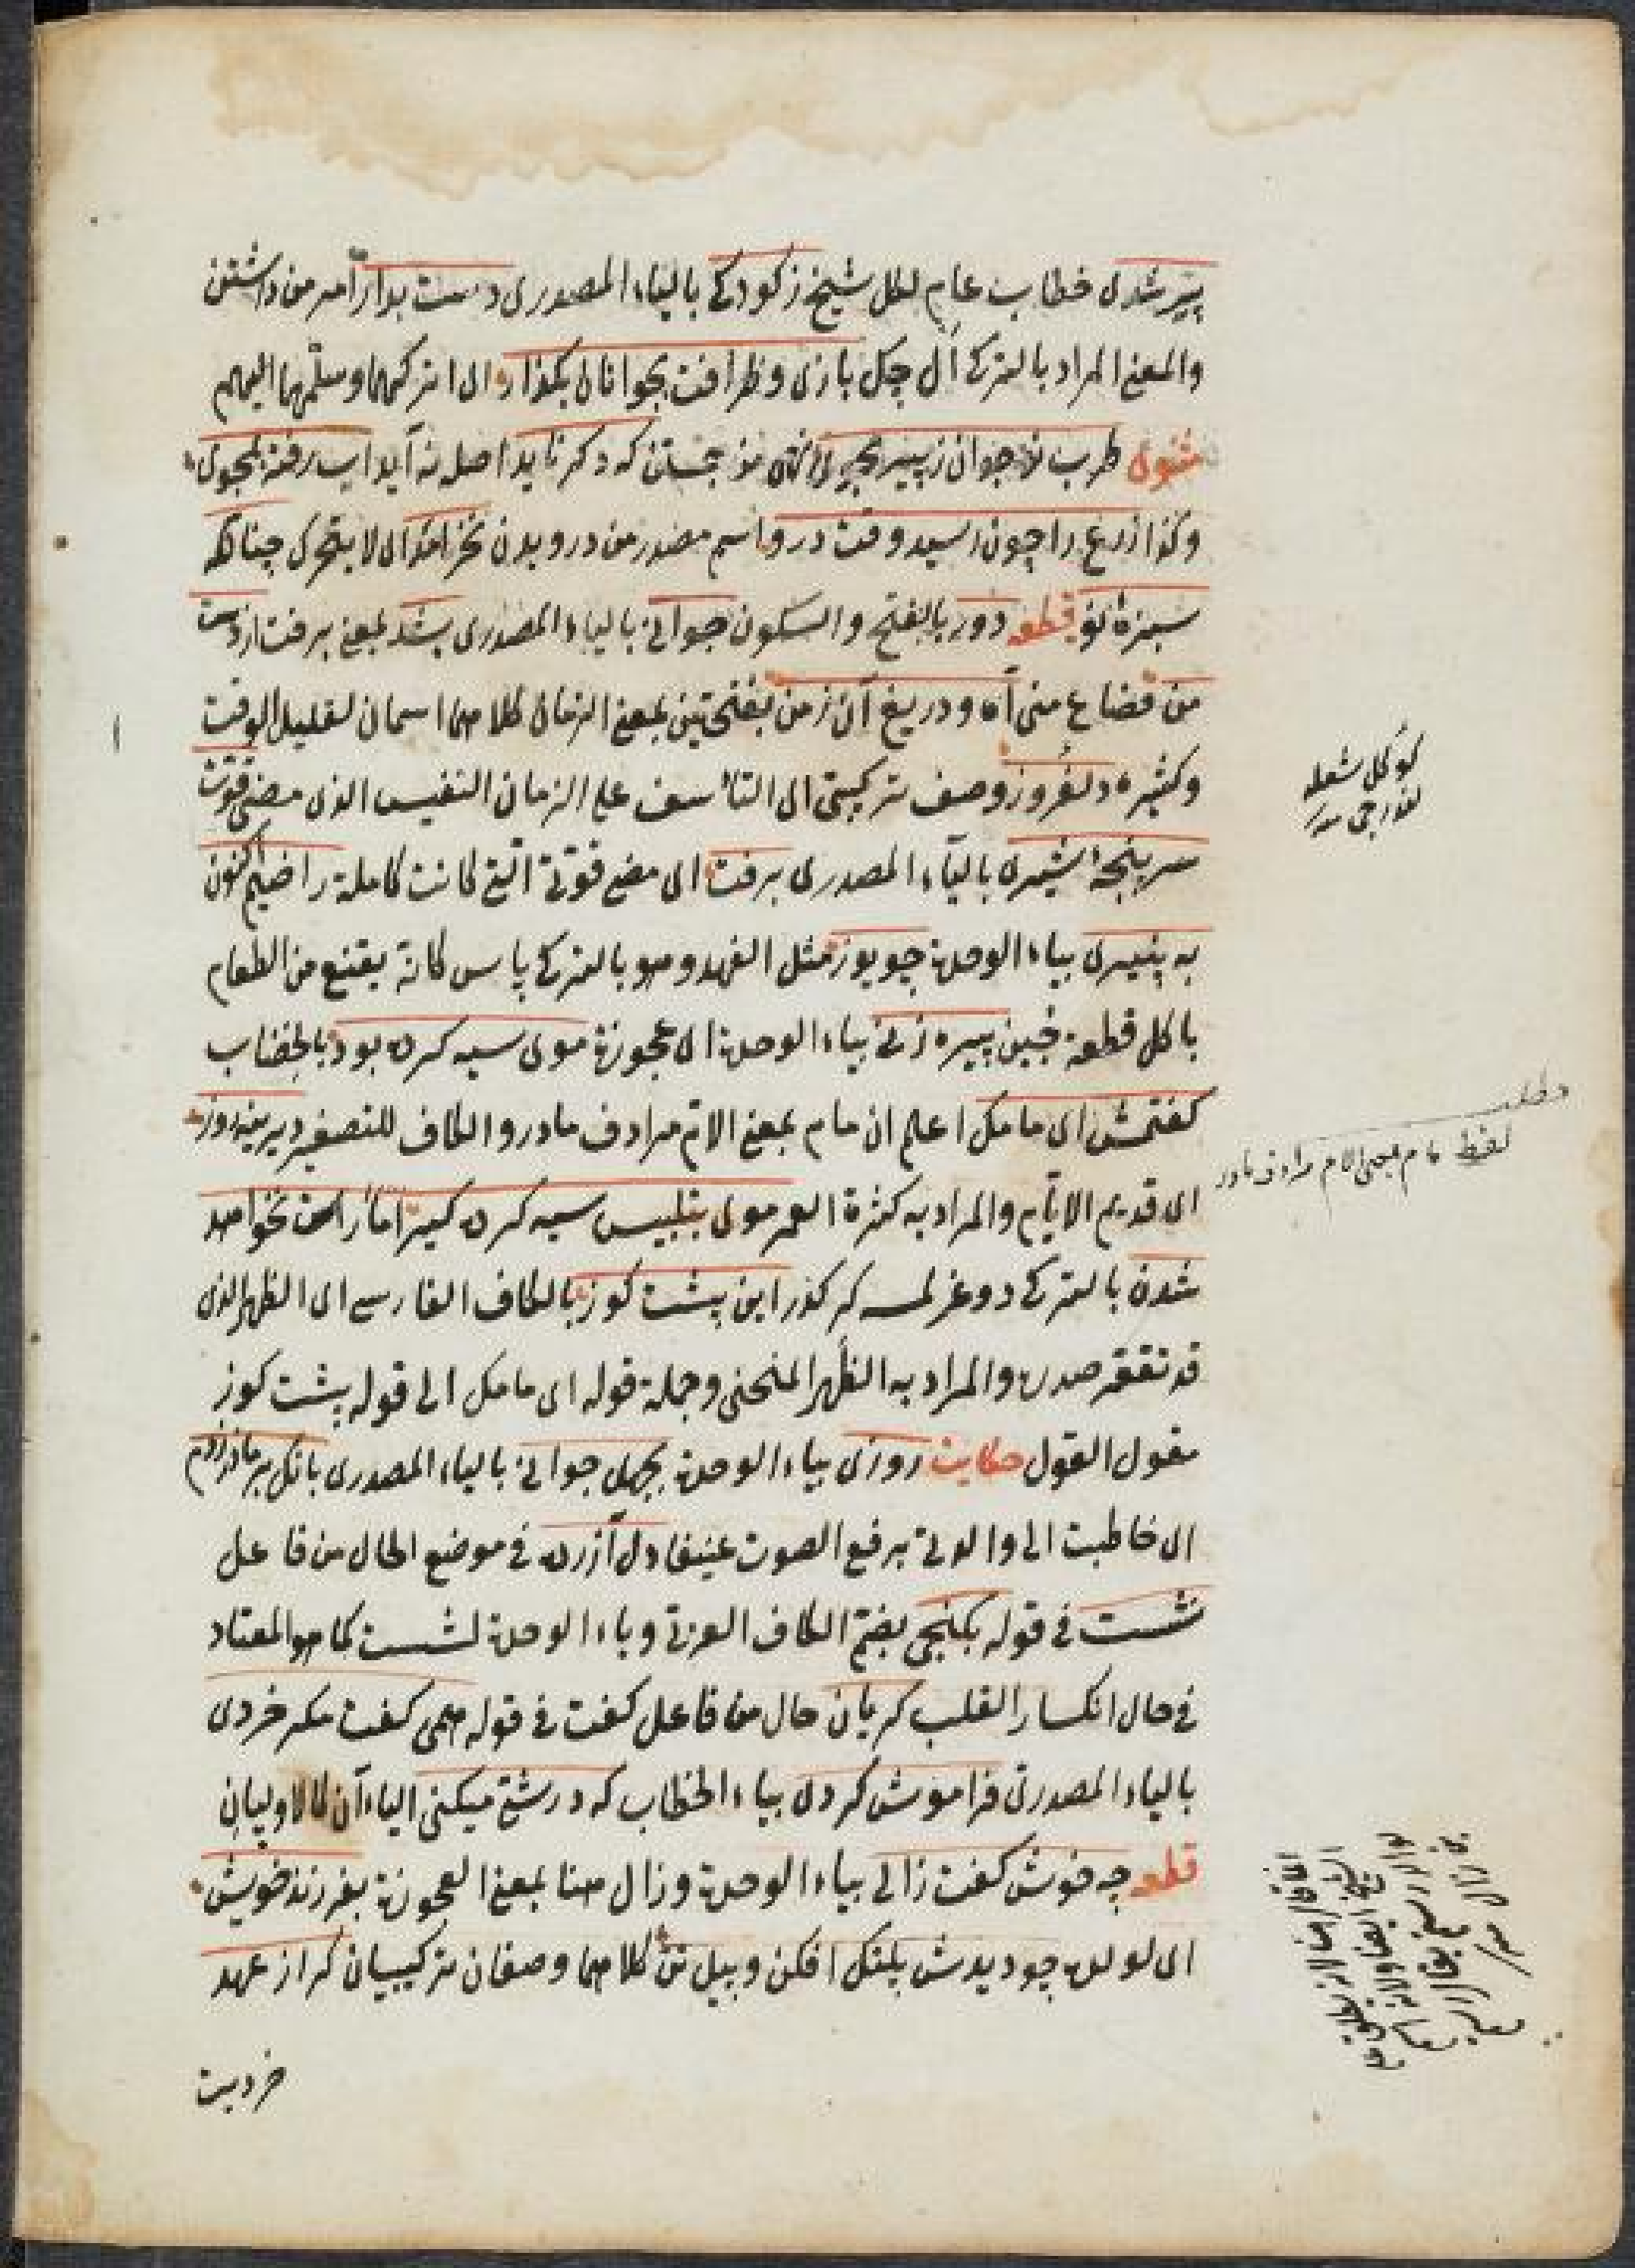 پیر شدی خطاب عام لکل شیخ ز کودکی بالیاء المصدری دست بدار امر من داشتن
والمعنی المراد بالترکی ال چک بازی وظرافت بجوانان بکذار ای اترکهما وسلّمهما الیهم
مثنوی طرب نوجوان ز پیر مجوی نهی من جستن که دکر ناید اصله نه آید اب رفته بجوی
وکذا زرع را چون رسید وقت درو اسم مصدر من درویدن نخرامد ای لا یتحرک چنانکه
سبزهٔ نو قطعه دور بالفتح والسکون جوانی بالیاء المصدری بشد بمعنی برفت از دست
من فضاع منی آه ودریغ آن زمن بفتحتین بمعنی الزمان کلاهما اسمان لقلیل الوقت
وکثیره دلفروز وصف ترکیبی ای التأسف علی الزمان النفیس الذی مضی قوّت
سرپنجهٔ شیری بالیاء المصدری برفت ای مضی قوّتی التی کانت کاملة راضیم اکنون
به پنیری بیاء الوحدة چو یوز مثل الفهد وهو بالترکی پاس کانه یقنع من الطعام
باکل قطعة جبن پیره زنی بیاء الوحدة ای عجوزة موی سیه کرده بود بالخضاب
کفتمش ای مامک اعلم ان مام بمعنی الام مرادف مادر والکاف للتصغیر دیرینه روز
ای قدیم الایّام والمراد به کثرة العمر موی بتلبیس سیه کرده کیر امّا راست نخواهد
شدن بالترکی دوغرلمسه کرکدر این پشت کوز بالکاف الفارسی ای الظهر الذی
قد تقعر صدره والمراد به الظهر المنحنی وجملة قوله ای مامک الی قوله پشت کوز
مقول القول حکایت روزی بیاء الوحدة بجهل جوانی بالیاء المصدری بانک بر مادر زدم
ای خاطبت الی والدتی برفع الصوت عنیفا دل آزرده فی موضع الحال من فاعل
نشست فی قوله بکنجی بضم الکاف العربی ویاء الوحدة نشست کما هو المعتاد
فی حال انکسار القلب کریان حال من فاعل کفت فی قوله همی کفت مکر خردی
بالیاء المصدری فراموش کردی بیاء الخطاب که درشتی میکنی الیاءان کالاولیان
قطعه چه خوش کفت زالی بیاء الوحدة وزال هنا بمعنی العجوزة بفرزند خویش
ای لولده چو دیدش پلنک افکن وپیل تن کلاهما وصفان ترکیبیان کر از عهد
خردیت
کوکل شعله
مطلب
لفظ مام بمعنی الام مرادف مادر